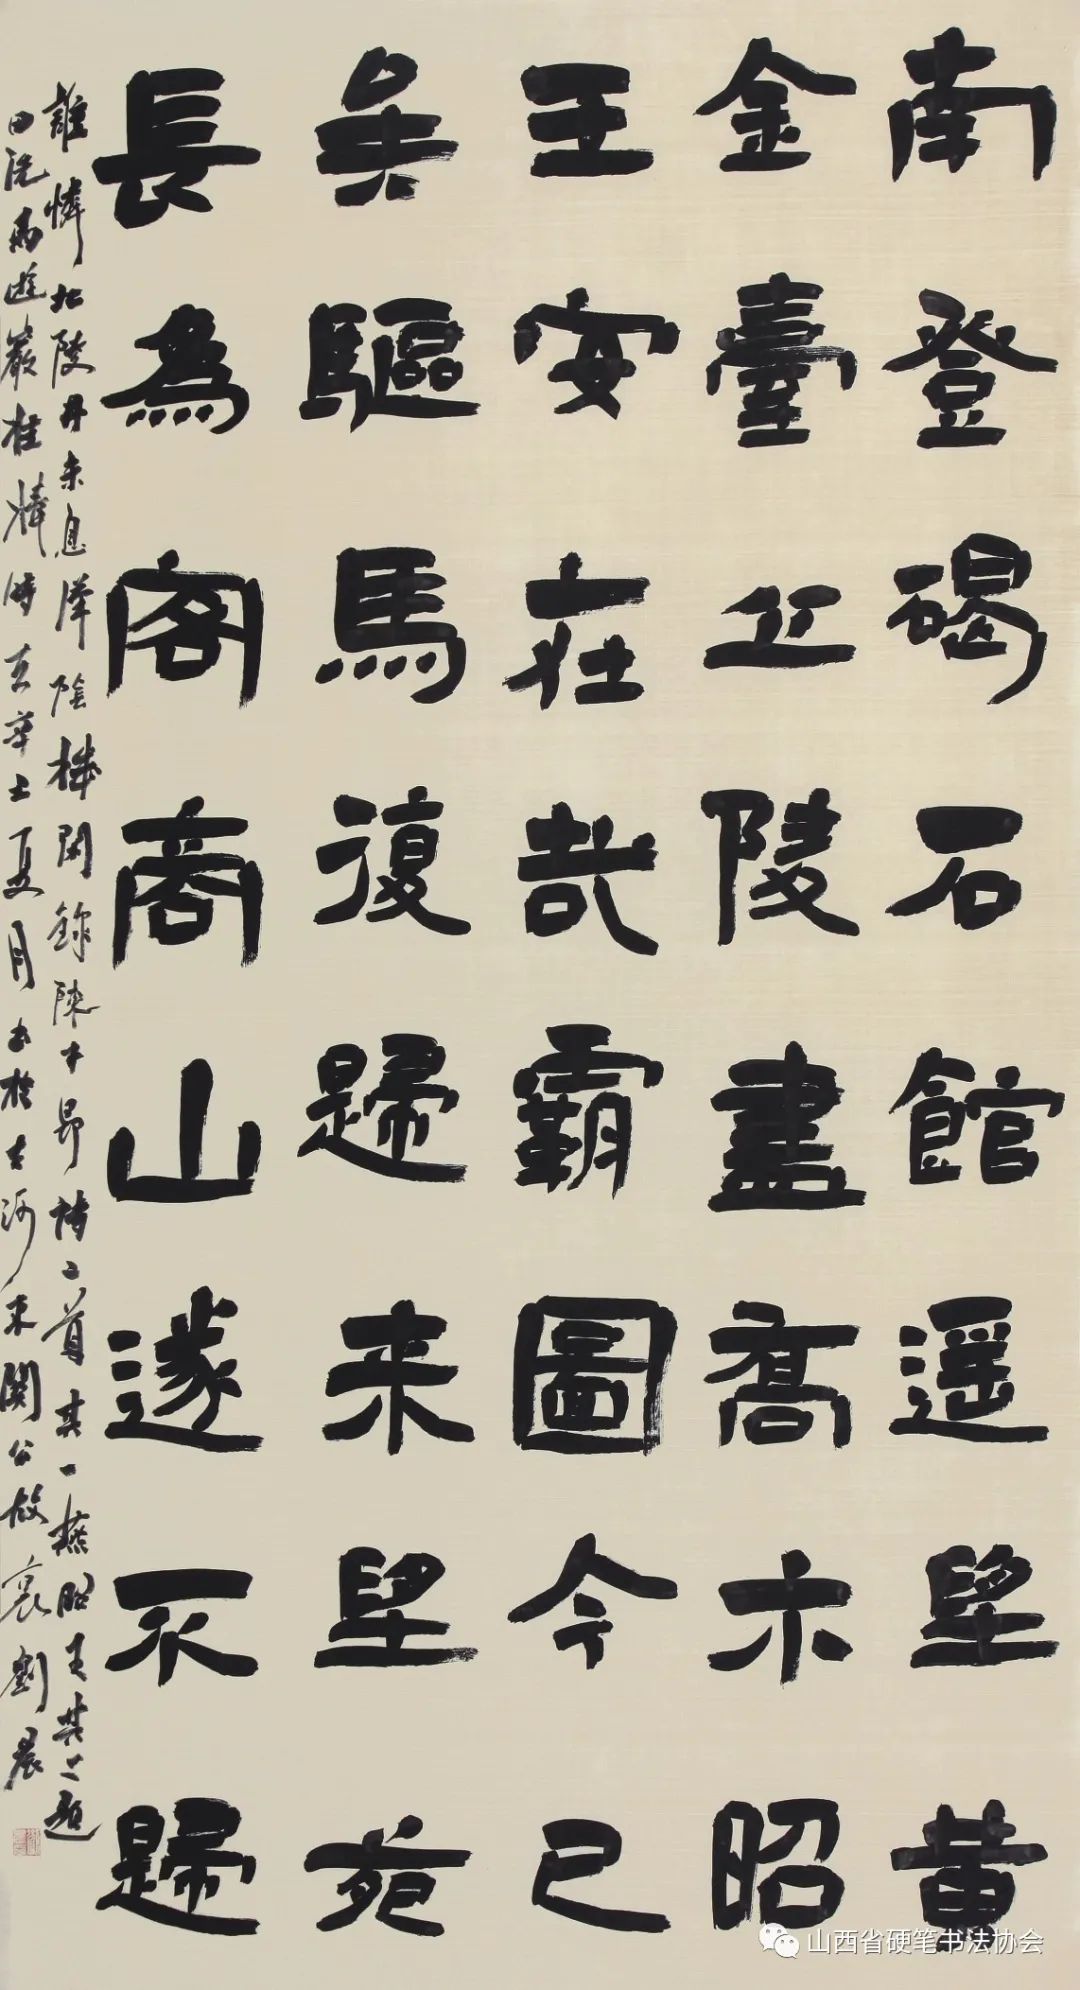 南登碣石館遥望黄
金臺丘陵盡喬木昭
王安在哉霸圖今已
矣驅馬復歸来望苑
長為客商山遂不歸
誰憐北陵井未息漢陰機閑錄陳子昂詩二首其一燕昭王其二題
田洗馬遊巖桔槔時在辛丑夏月書於古河東關公故裏劉晨
山西省硬笔书法协会